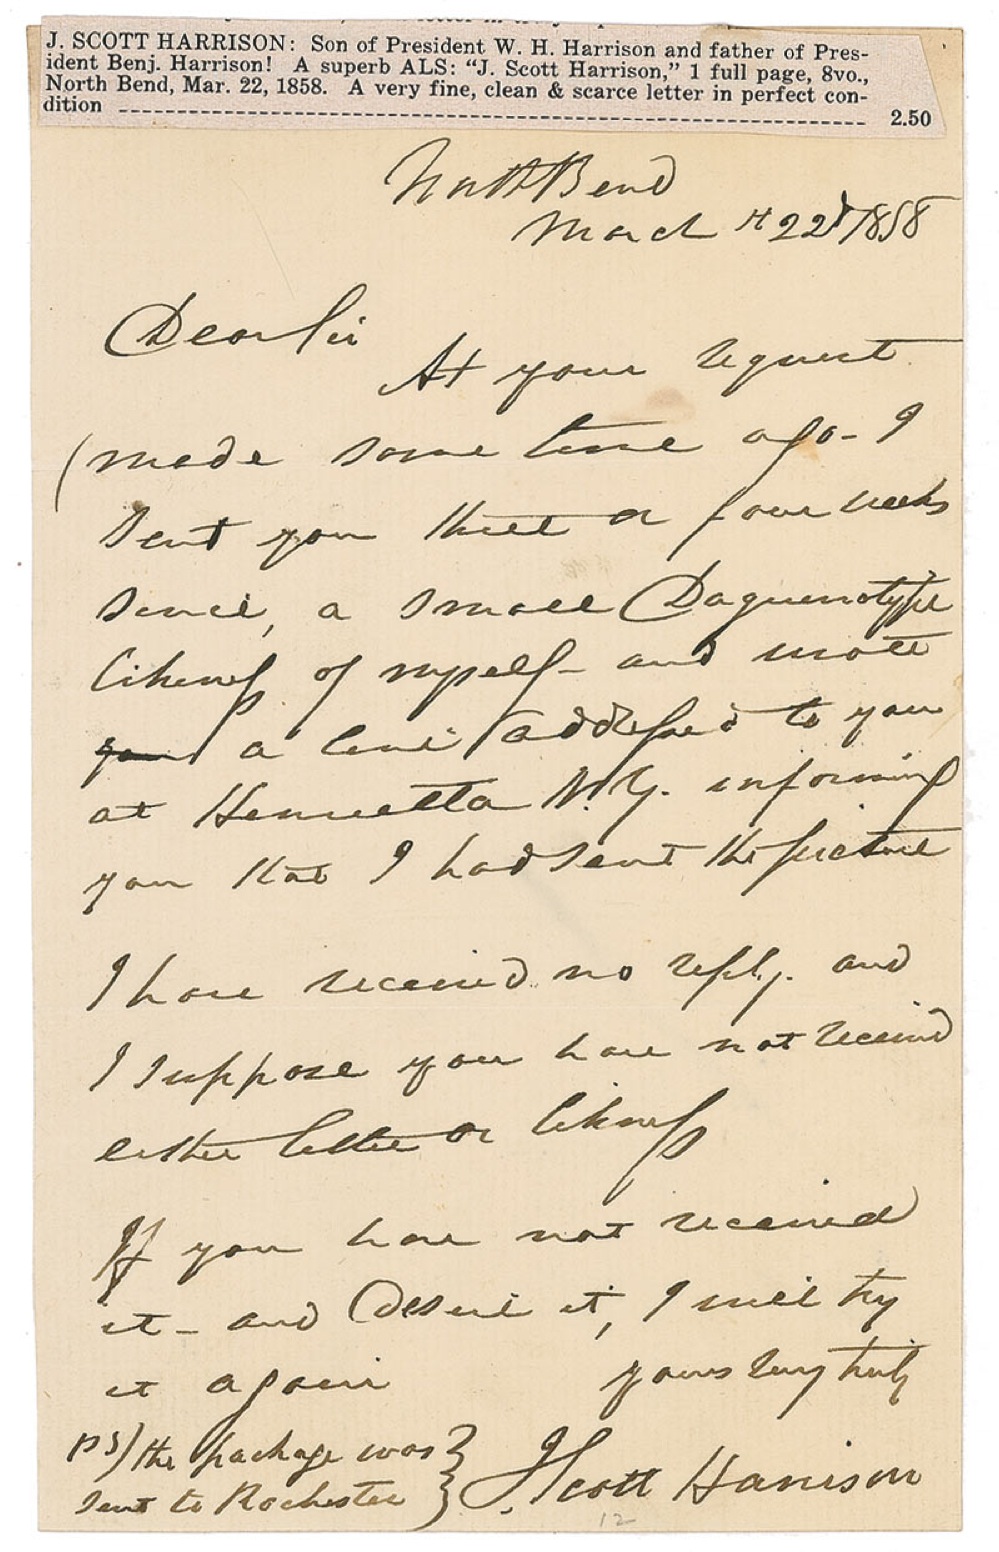 J. SCOTT HARRISON: Son of President W. H. Harrison and father of Pres-
ident Benj. Harrison! A superb ALS: “J. Scott Harrison,” 1 full page, 8vo.,
North Bend, Mar. 22, 1858. A very fine, clean & scarce letter in perfect con-
dition 2.50
North Bend
March 22d 1858
Dear Sir
At your request
(made some time ago - I
sent you three or four weeks
since, a small Daguerrotype
likeness of myself - and wrote
you a line addressed to you
at Henrietta N.Y. informing
you that I had sent the picture
I have received no reply. and
I suppose you have not received
either letter or likeness
If you have not received
it - and desire it, I will try
it again yours very truly
PS) the package was
sent to Rochester
J Scott Harrison
12